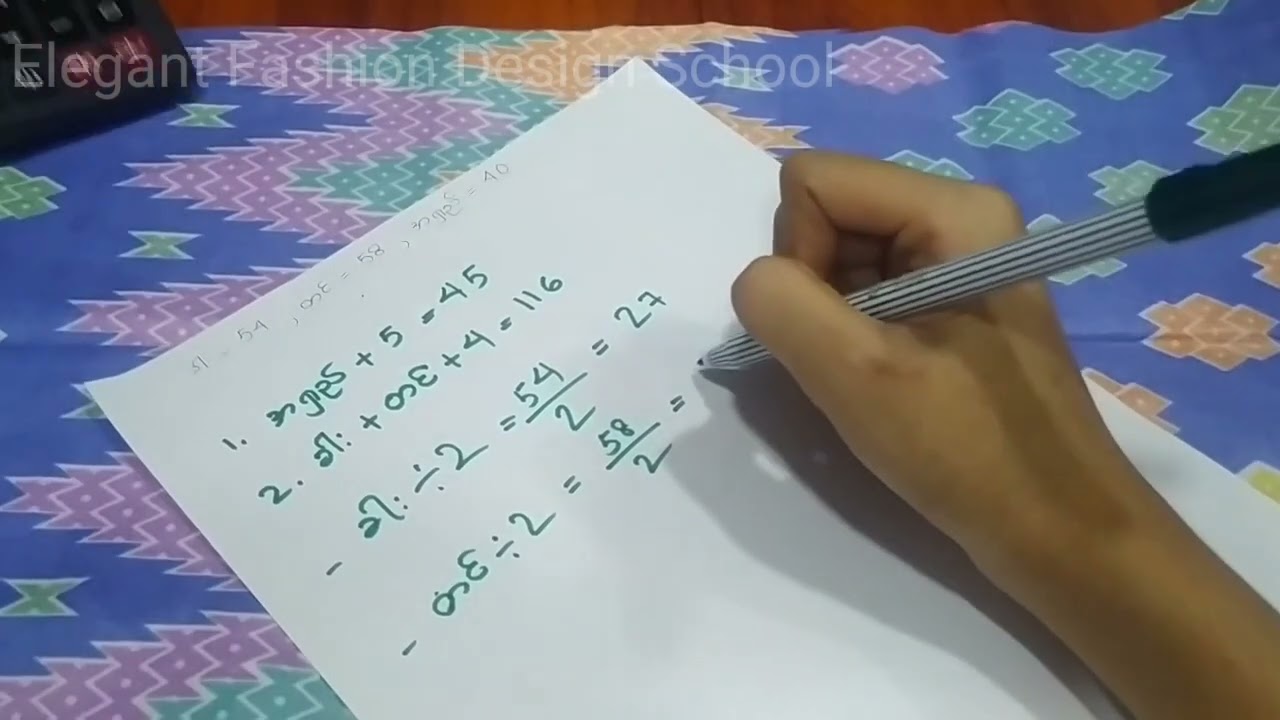 Elegant Fashion Design School
ခါး = 54 , တင် = 58 , အရှည် = 40
1. အရှည် + 5 = 45
2. ခါး + တင် + 4 = 116
- ခါး ÷ 2 = 54/2 = 27
- တင် ÷ 2 = 58/2 =